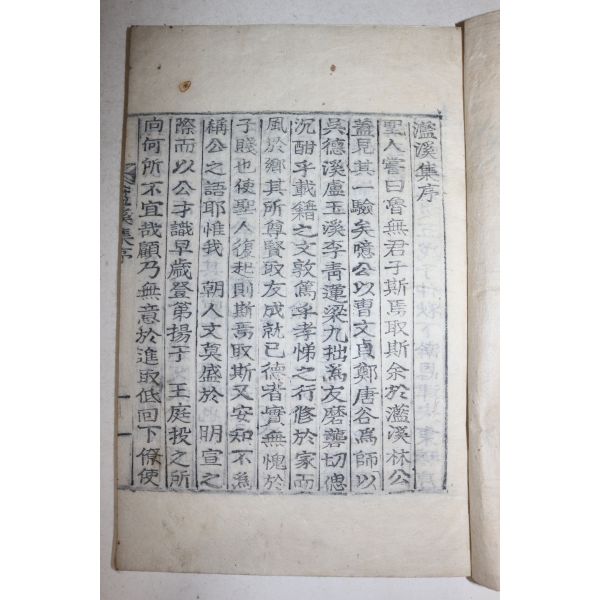 灆溪集序
聖人嘗曰魯無君子斯焉取斯余於灆溪林公
蓋見其一驗矣噫公以曹文貞鄭唐谷爲師以
吳德溪盧玉溪李靑蓮梁九拙爲友磨礱切偲
沉酣乎載籍之文敦篤乎孝悌之行修於家而
風於鄕其所尊賢取友成就已德者實無愧於
子賤也使聖人復起則斯焉取斯又安知不爲
稱公之語耶惟我 朝人文莫盛於 明宣之
際而以公才識早歲登第揚于 王庭投之所
向何所不宜哉顧乃無意於進取低回下僚使
灆溪集序
一